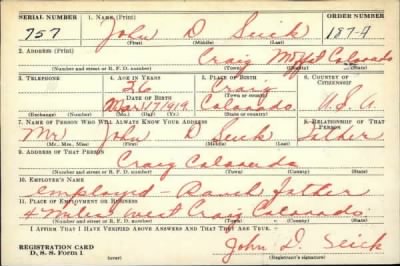 SERIAL NUMBER 1. NAME (Print) ORDER NUMBER
757 John D Seick
(First) (Middle) (Last)
2. ADDRESS (Print)
Craig Moffat Colorado
(Number and street or R. F. D. number) (Town) (County) (State)
3. TELEPHONE 4. AGE IN YEARS 5. PLACE OF BIRTH 6. COUNTRY OF CITIZENSHIP
26 Craig
DATE OF BIRTH (Town or county)
Mar 17 1919 Colorado U.S.A
(Exchange) (Number) (Mo.) (Day) (Yr.) (State or country)
7. NAME OF PERSON WHO WILL ALWAYS KNOW YOUR ADDRESS 8. RELATIONSHIP OF THAT PERSON
Mr John D Seick Father
(Mr., Mrs., Miss) (First) (Middle) (Last)
9. ADDRESS OF THAT PERSON
Craig Colorado
(Number and street or R. F. D. number) (Town) (County) (State)
10. EMPLOYER'S NAME
employed - Ranch, father
11. PLACE OF EMPLOYMENT OR BUSINESS
4 Miles West Craig Colorado
(Number and street or R. F. D. number) (Town) (County) (State)
I AFFIRM THAT I HAVE VERIFIED ABOVE ANSWERS AND THAT THEY ARE TRUE.
REGISTRATION CARD
D. S. S. Form 1 John D. Seick
(Registrant's signature)